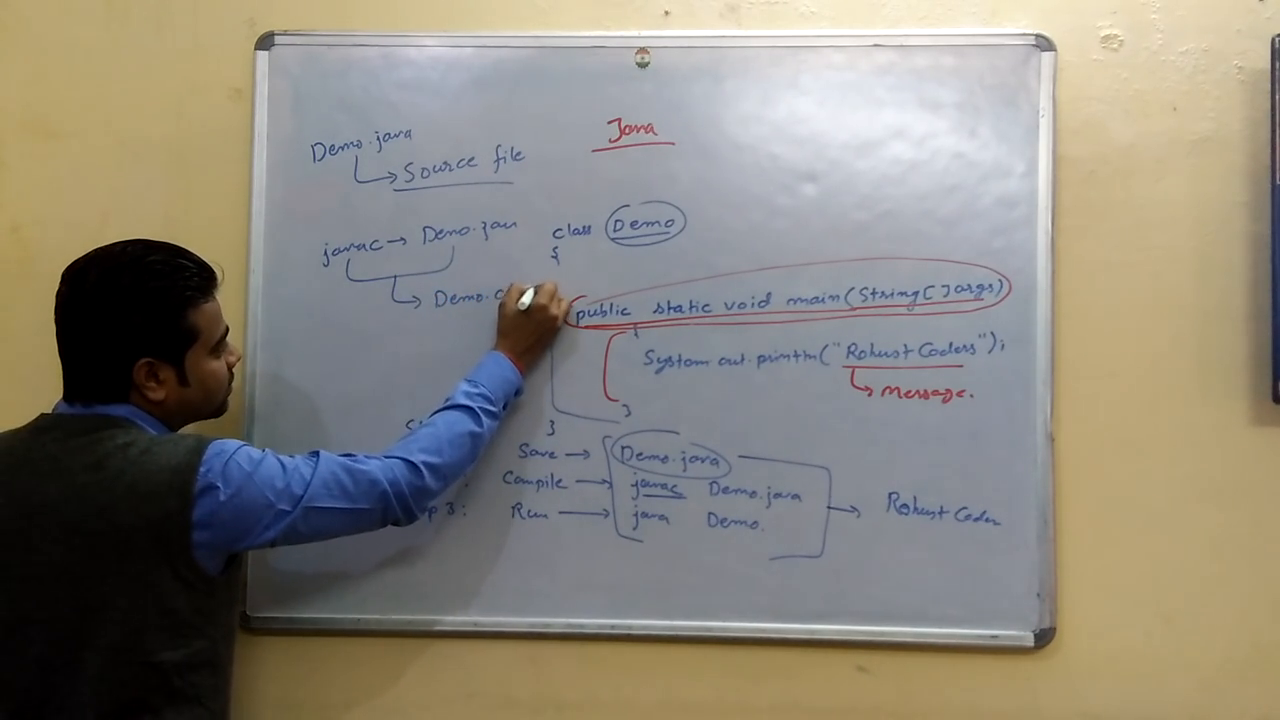 Java
Demo.java
Source file
javac → Demo.java
Demo.c
class Demo
{
public static void main(String[] args)
{
System.out.println("Robust Coders");
message.
}
}
Save → Demo.java
: Compile → javac Demo.java
p 3: Run → java Demo.
→ Robust Coder